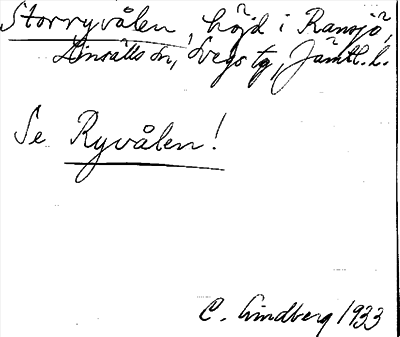 Storryvålen, höjd i Ransjö,
Linsälls sn, Svegs tg, Jämtl. l.
Se Ryvålen!
C. Lindberg 1933